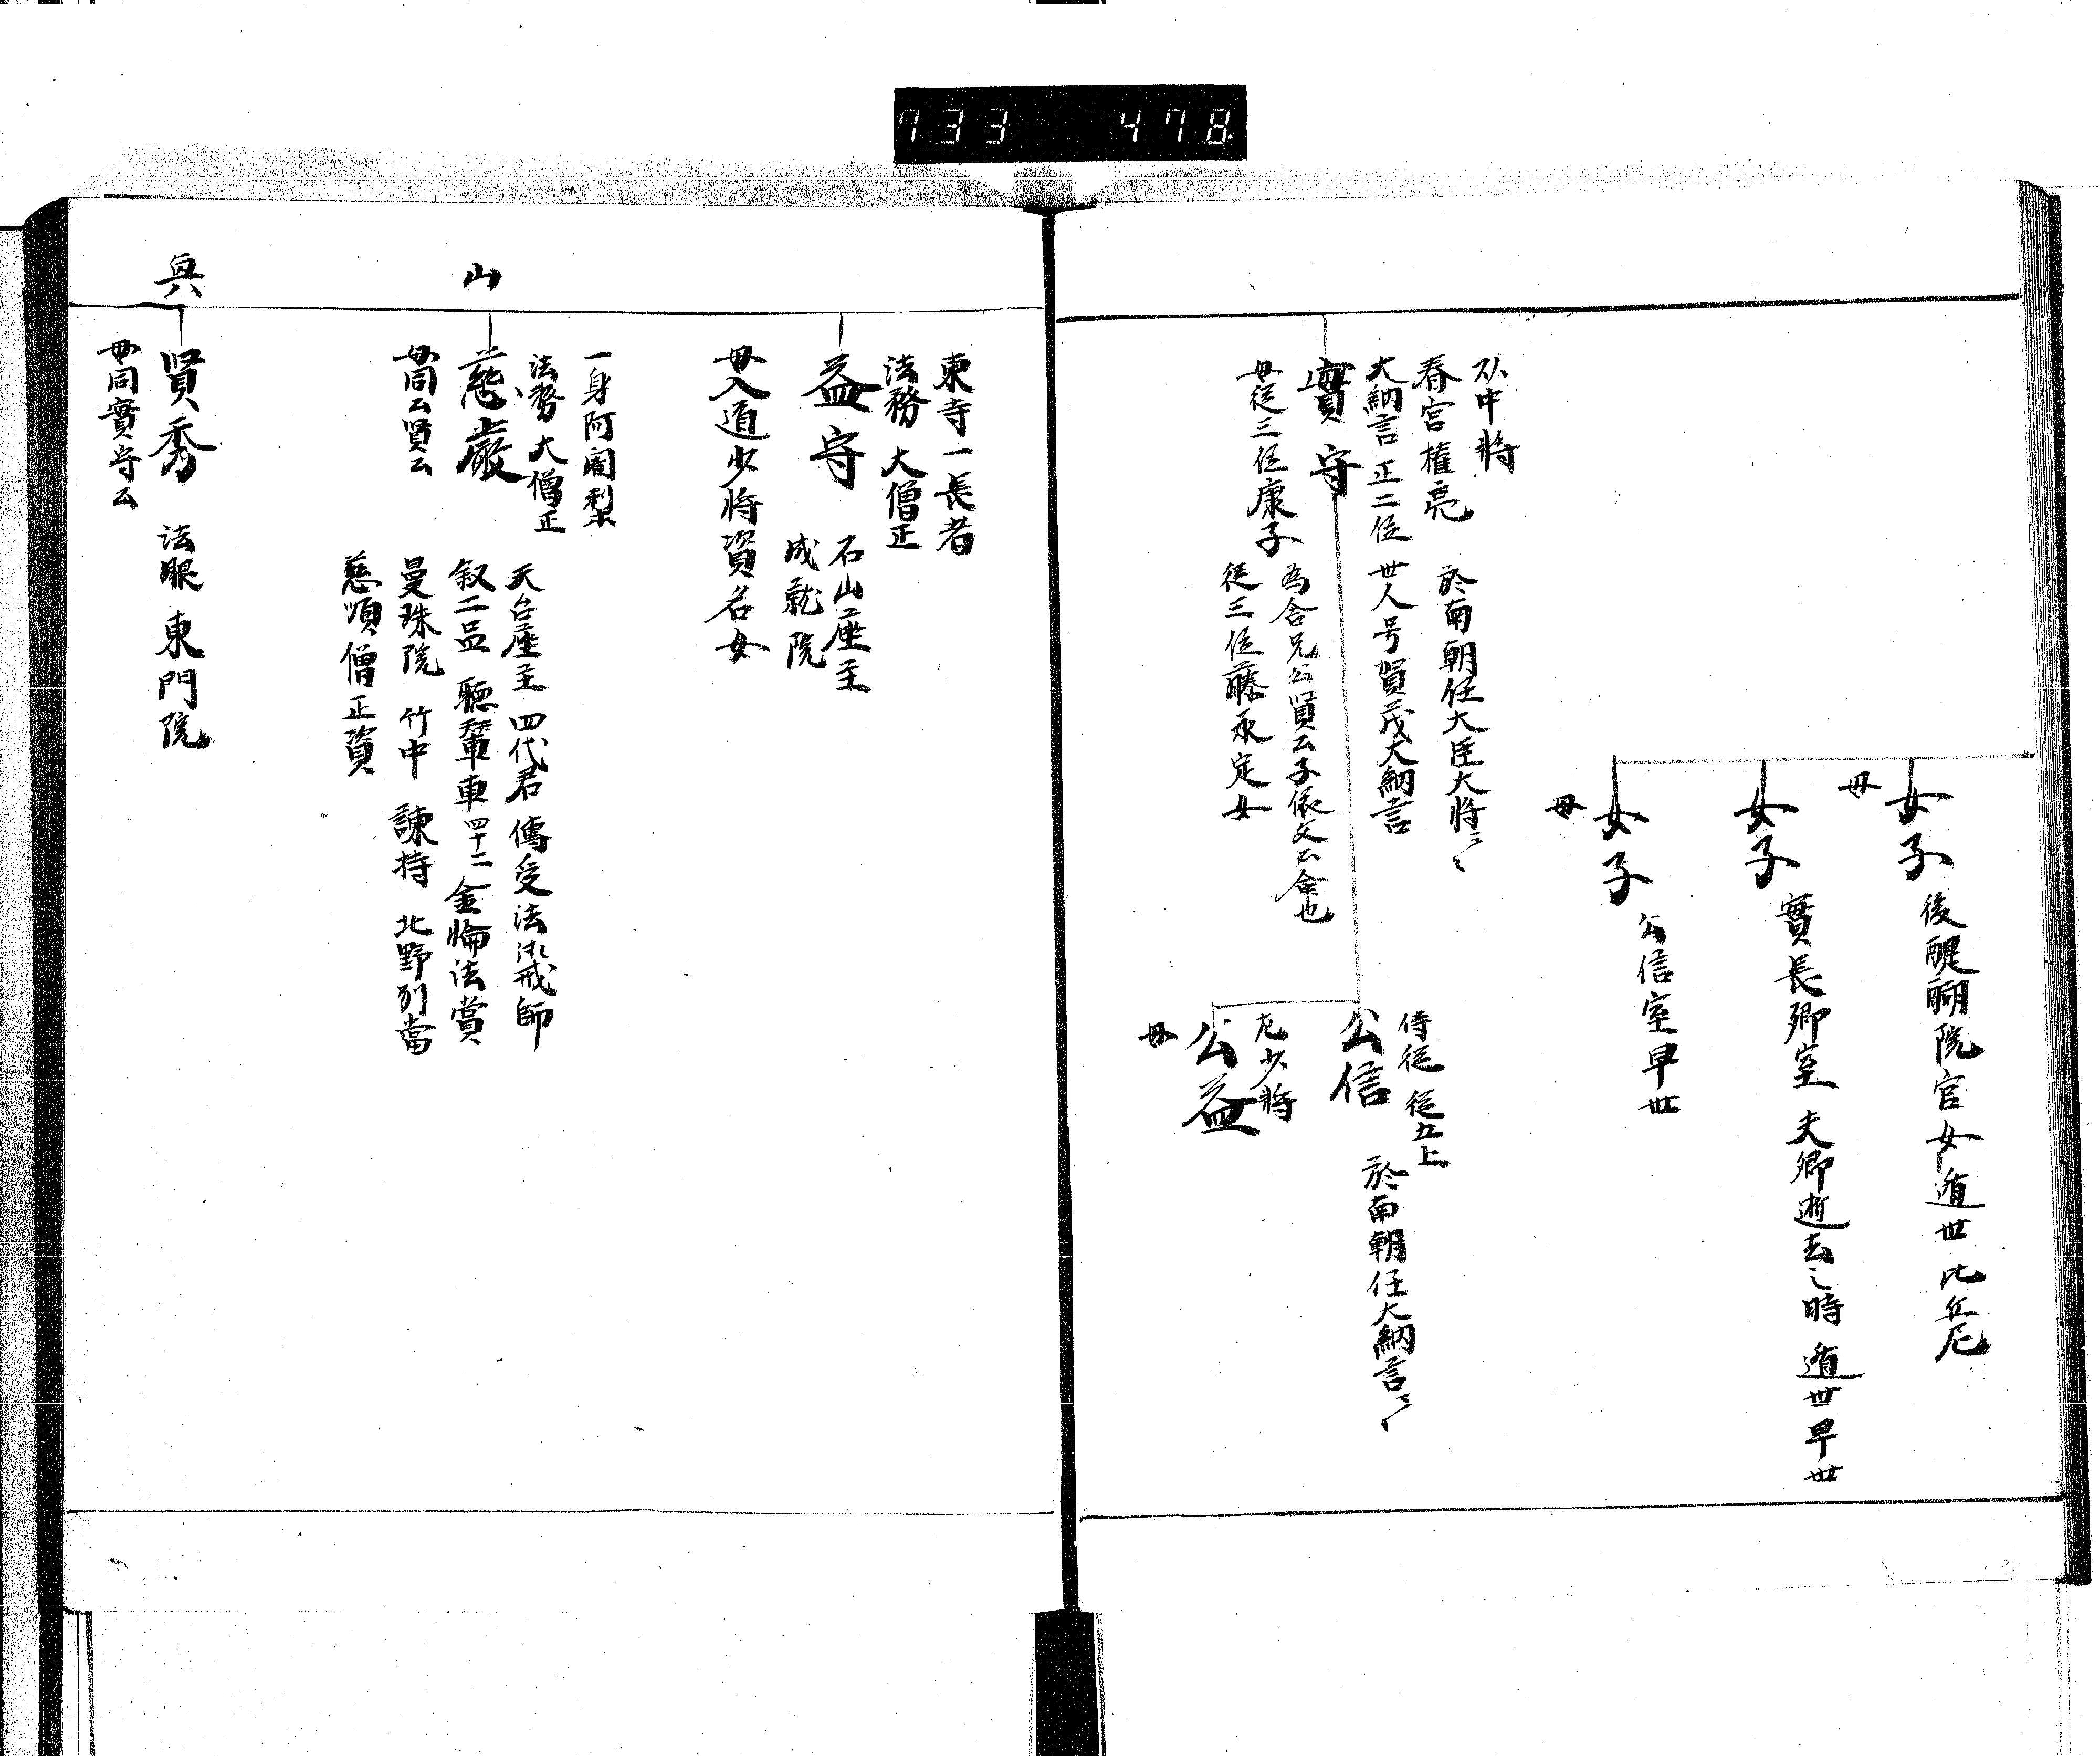 733 478
女子
後醍醐院官女遁世比丘尼
母
女子
實長卿室 夫卿逝去之時 遁世早世
女子
公信室早世
母
中將
春宮權亮
於南朝任大臣大將云々
大納言 正二位 世人号賀茂大納言
實守
為舍兄公賢公子依父公命也
母從三位康子
從三位藤永定女
侍從 從五上
公信
於南朝任大納言云々
左少將
公益
母
東寺一長者
法務 大僧正
益守
石山座主
成就院
母入道少將資名女
一身阿闍梨
法務 大僧正
山
慈嚴
天台座主 四代君 傳受法御戒師
叙二品 聽輦車 四十二 金輪法賞
母同公賢公
曼珠院 竹中 諫持 北野別當
慈順僧正資
興
賢秀 法眼 東門院
母同實守公